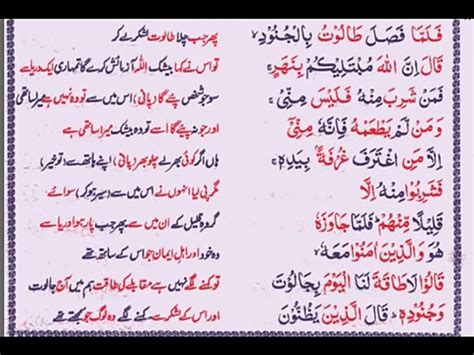 فَلَمَّا فَصَلَ طَالُوْتُ بِالْجُنُوْدِ ۙ
پھر جب چلا طالوت لشکر لے کر
قَالَ اِنَّ اللّٰهَ مُبْتَلِيْكُمْ بِنَهَرٍ ۚ
تو اس نے کہا بیشک اللہ آزمائش کرے گا تمہاری ایک دریا سے
فَمَنْ شَرِبَ مِنْهُ فَلَيْسَ مِنِّيْ ۚ
سو جو شخص پئے گا (پانی) اس میں سے تو وہ نہیں ہے میرا ساتھی
وَمَنْ لَّمْ يَطْعَمْهُ فَاِنَّهٗ مِنِّيْٓ
اور جو نہ پئے گا اسے تو وہ بیشک میرا ساتھی ہے
اِلَّا مَنِ اغْتَرَفَ غُرْفَةًۢ بِيَدِهٖ ۚ
ہاں اگر کوئی بھر لے چلو بھر (پانی) اپنے ہاتھ سے (تو خیر)
فَشَرِبُوْا مِنْهُ اِلَّا
مگر پی لیا انہوں نے اس میں سے (سیر ہو کر) سوائے
قَلِيْلًا مِّنْهُمْ ؕ فَلَمَّا جَاوَزَهٗ
گروہ قلیل کے ان میں سے پھر جب پار ہوا دریا سے
هُوَ وَالَّذِيْنَ اٰمَنُوْا مَعَهٗ ۙ
وہ خود اور اہل ایمان جو اس کے ساتھ تھے
قَالُوْا لَا طَاقَةَ لَنَا الْيَوْمَ بِجَالُوْتَ
تو کہنے لگے نہیں ہے مقابلے کی طاقت ہم میں آج جالوت
وَجُنُوْدِهٖ ؕ قَالَ الَّذِيْنَ يَظُنُّوْنَ
اور اس کے لشکر سے کہنے لگے وہ لوگ جو سمجھتے تھے